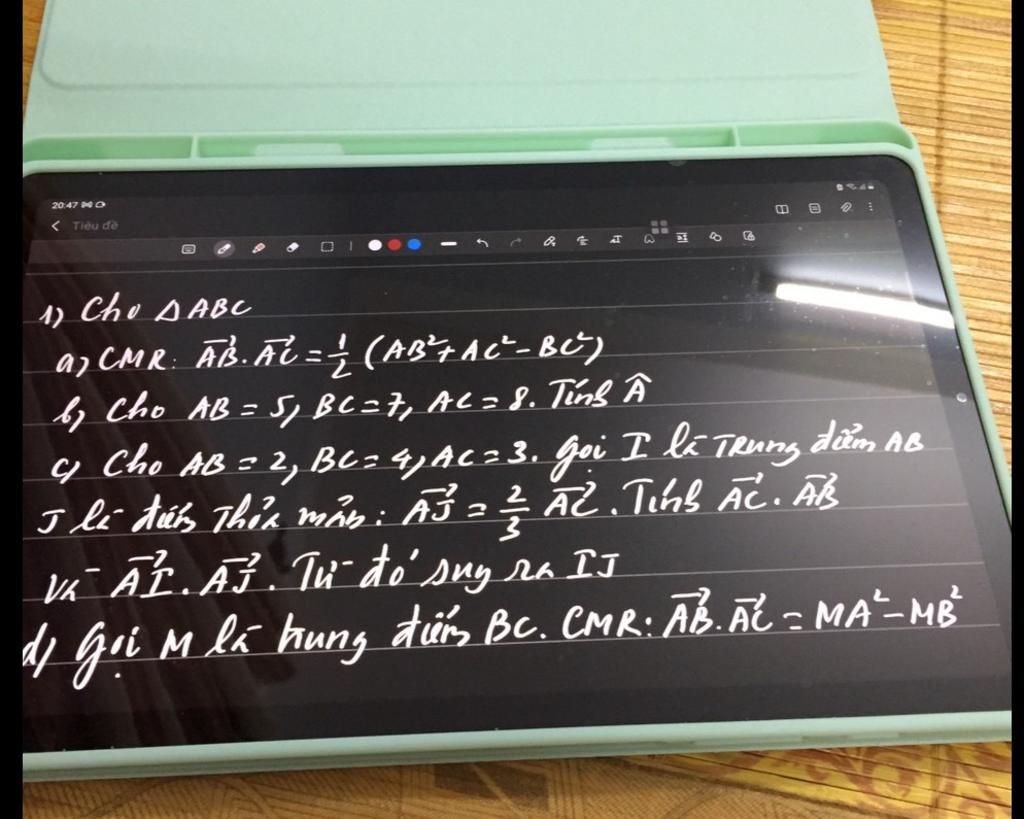 20:47
Tiêu đề
1) Cho △ABC
a) CMR: \(\overrightarrow{AB}.\overrightarrow{AC} = \frac{1}{2}(AB^2 + AC^2 - BC^2)\)
b) Cho AB = 5, BC = 7, AC = 8. Tính \(\hat{A}\)
c) Cho AB = 2, BC = 4, AC = 3. Gọi I là Trung điểm AB
J là điểm Thỏa mãn: \(\overrightarrow{AJ} = \frac{2}{3}\overrightarrow{AC}\). Tính \(\overrightarrow{AC}.\overrightarrow{AB}\)
Và \(\overrightarrow{AI}.\overrightarrow{AJ}\). Từ đó suy ra IJ
d) Gọi M là trung điểm BC. CMR: \(\overrightarrow{AB}.\overrightarrow{AC} = MA^2 - MB^2\)